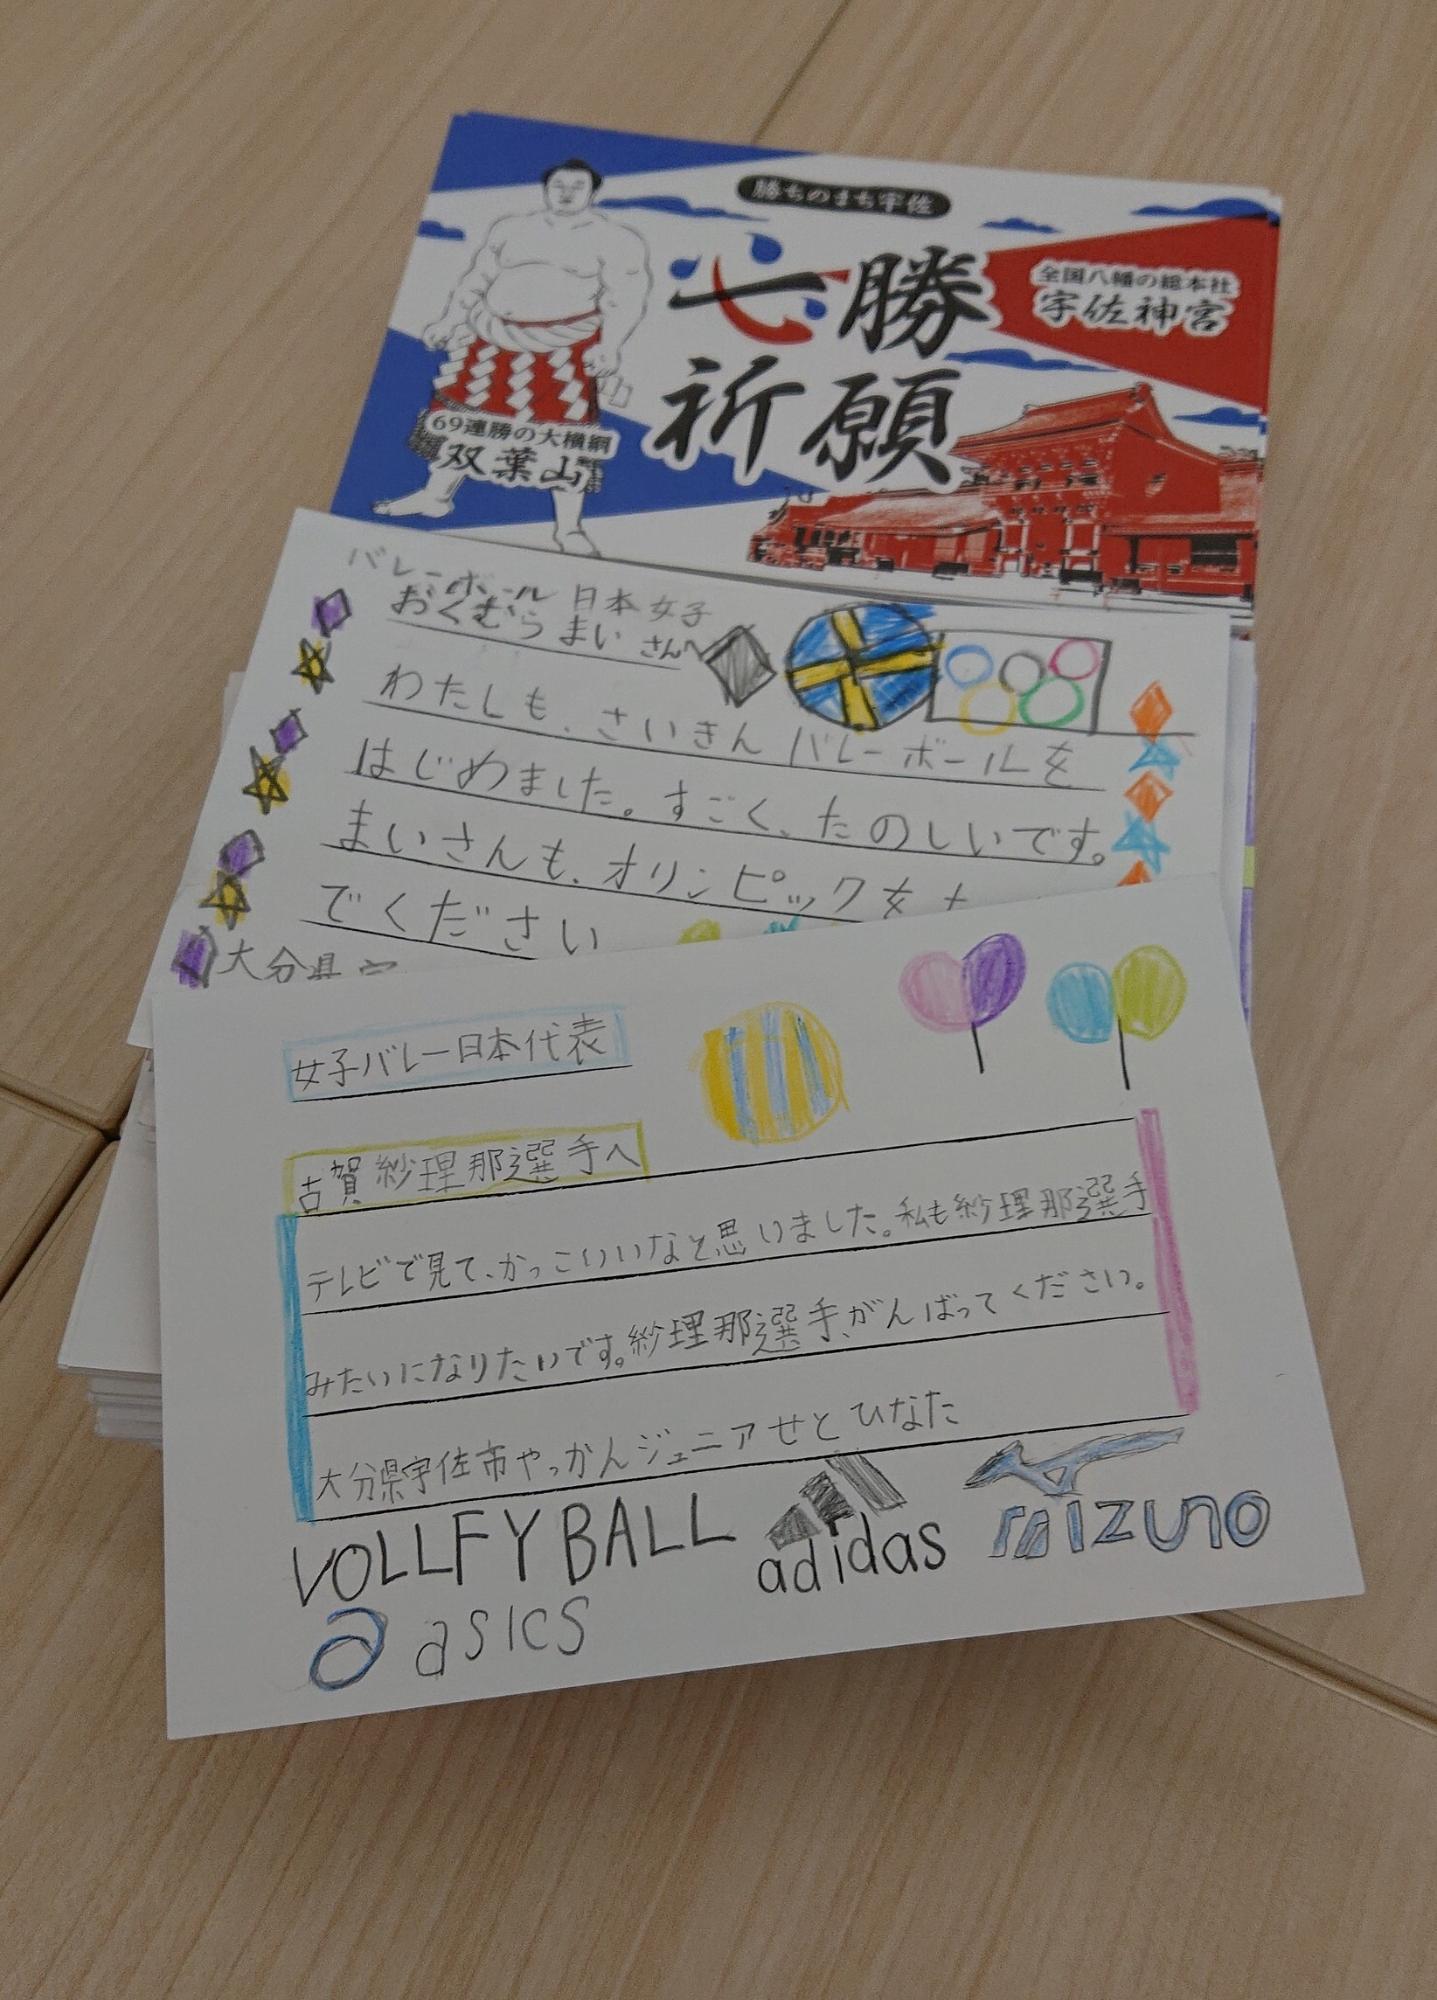 勝ちのまち宇佐
必勝
祈願
全国八幡の総本社
宇佐神宮
69連勝の大横綱
双葉山
バレーボール 日本女子
おくむら まい さんへ
わたしも、さいきん バレーボールを
はじめました。すごく、たのしいです。
まいさんも、オリンピックを
でください
大分県
女子バレー日本代表
古賀紗理那選手へ
テレビで見て、かっこいいなと思いました。私も紗理那選手
みたいになりたいです。紗理那選手、がんばってください。
大分県宇佐市やっかんジュニアせと ひなた
VOLLFYBALL
adidas
mizuno
asics